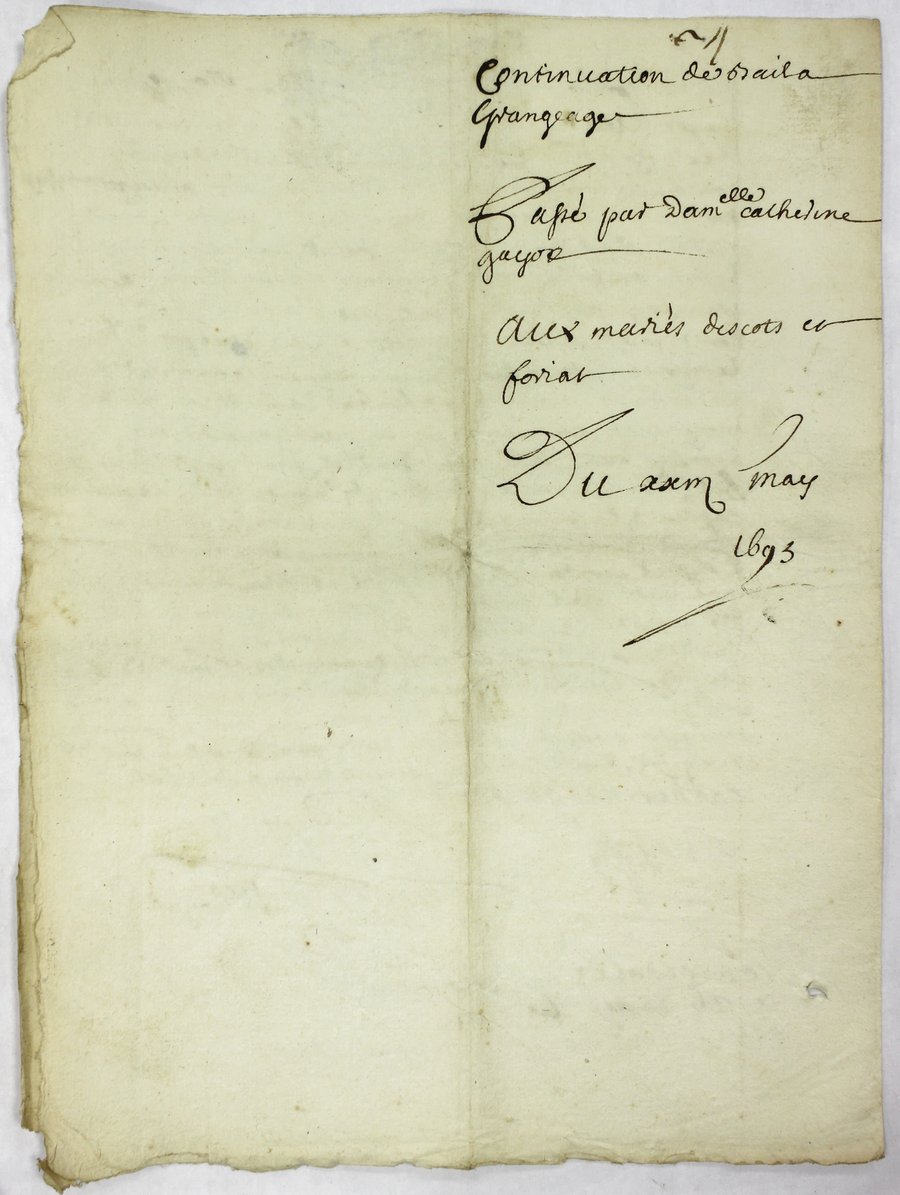 Continuation de bail a
Grangeage
Passé par Dam^elle Catherine
gayot
Aux mariés descots et
foriat
Du xxiii may
1693